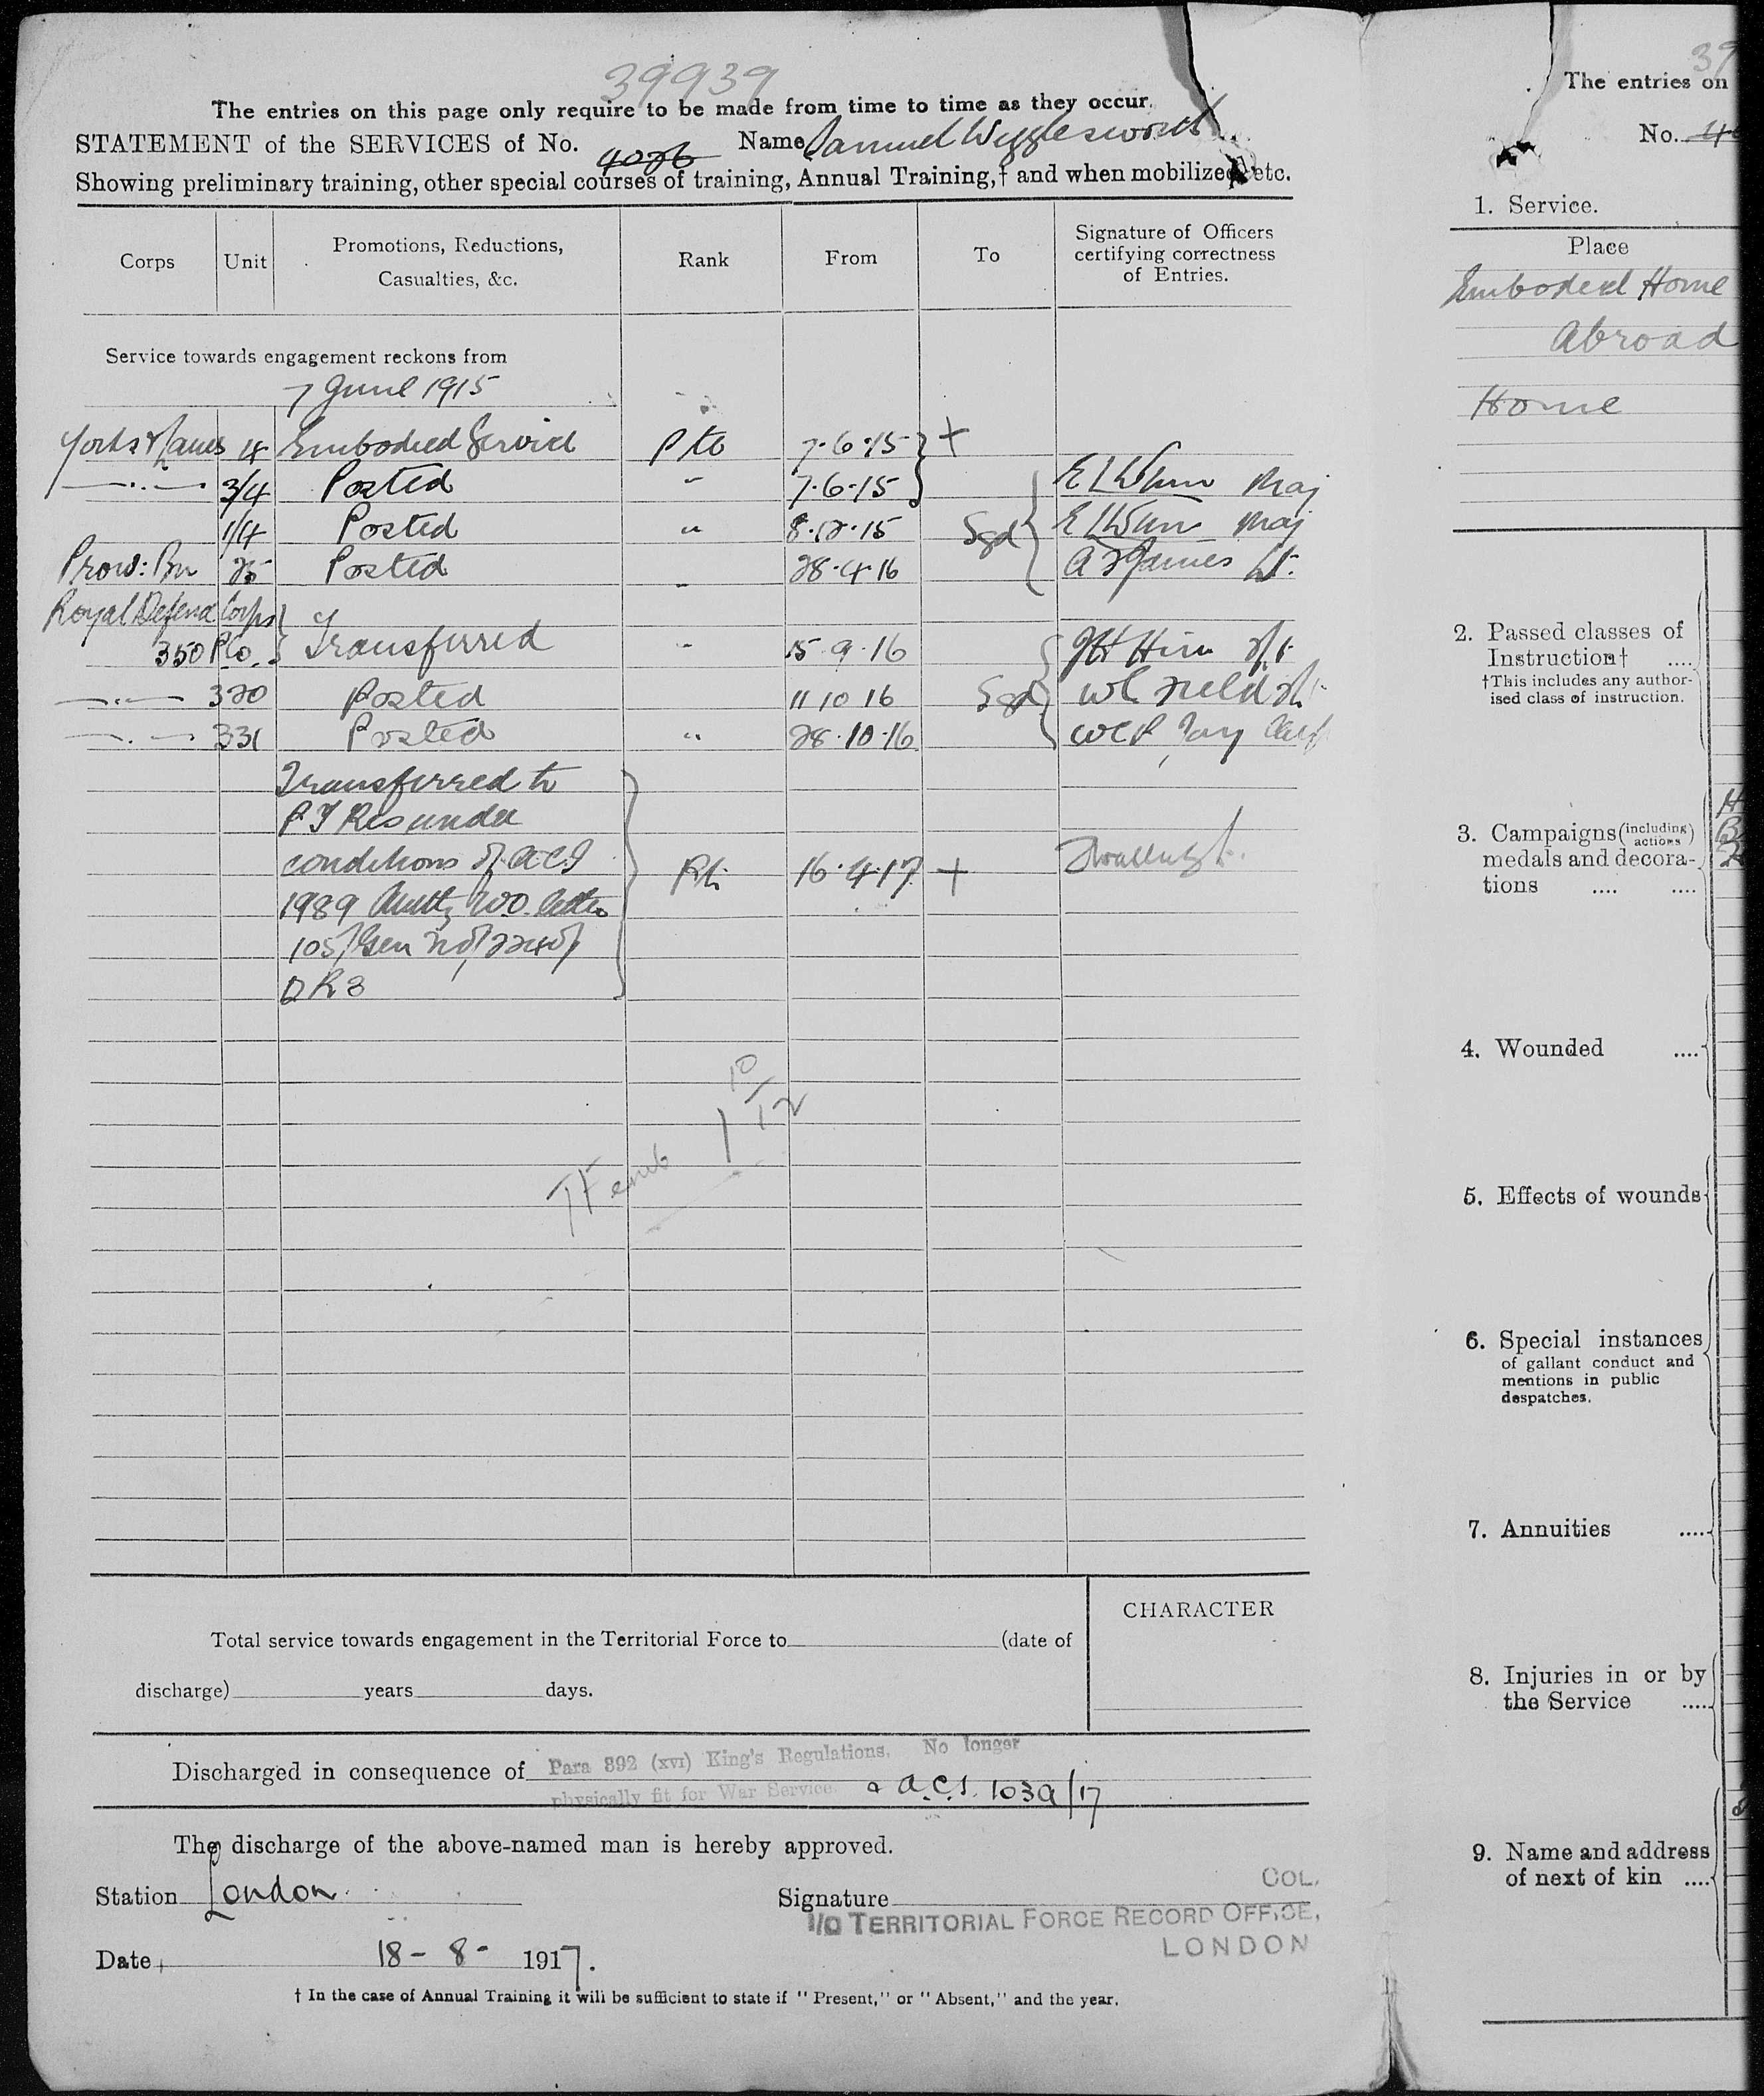 39939
The entries on this page only require to be made from time to time as they occur.
STATEMENT of the SERVICES of No. 4026 Name Samuel Wigglesworth
Showing preliminary training, other special courses of training, Annual Training,† and when mobilized, etc.
Corps Unit Promotions, Reductions, Casualties, &c. Rank From To Signature of Officers certifying correctness of Entries.
Service towards engagement reckons from
7 June 1915
Yorks & Lancs 4 Embodied Service Pte 7.6.15 +
—..— 3/4 Posted " 7.6.15 Maj
1/4 Posted " 8.12.15 Sgd Maj
Prov: Bn 25 Posted " 28.4.16 James Lt.
Royal Defence Corps
350 P Co. Transferred " 15.9.16
—..— 320 Posted 11 10 16 Sgd
—..— 331 Posted " 28.10.16
Transferred to
P T Res under
conditions of A.C.I
1989 Authy W.O. letter
105/Gen No/2240/
D R 3
Pte 16.4.17 +
TF emb 1 10/12
Total service towards engagement in the Territorial Force to (date of
discharge) years days.
CHARACTER
Discharged in consequence of Para 392 (xvi) King's Regulations. No longer
physically fit for War Service. & A.C.I. 1039/17
The discharge of the above-named man is hereby approved.
Station London.
Signature
COL.
I/C TERRITORIAL FORCE RECORD OFFICE,
LONDON
Date 18 - 8 - 1917.
† In the case of Annual Training it will be sufficient to state if "Present," or "Absent," and the year.
39
The entries on
No. 4
1. Service.
Place
Embodied Home
Abroad
Home
2. Passed classes of
Instruction† ....
†This includes any author-
ised class of instruction.
3. Campaigns (including actions)
medals and decora-
tions .... ....
4. Wounded ....
5. Effects of wounds
6. Special instances
of gallant conduct and
mentions in public
despatches.
7. Annuities ....
8. Injuries in or by
the Service ....
9. Name and address
of next of kin ....